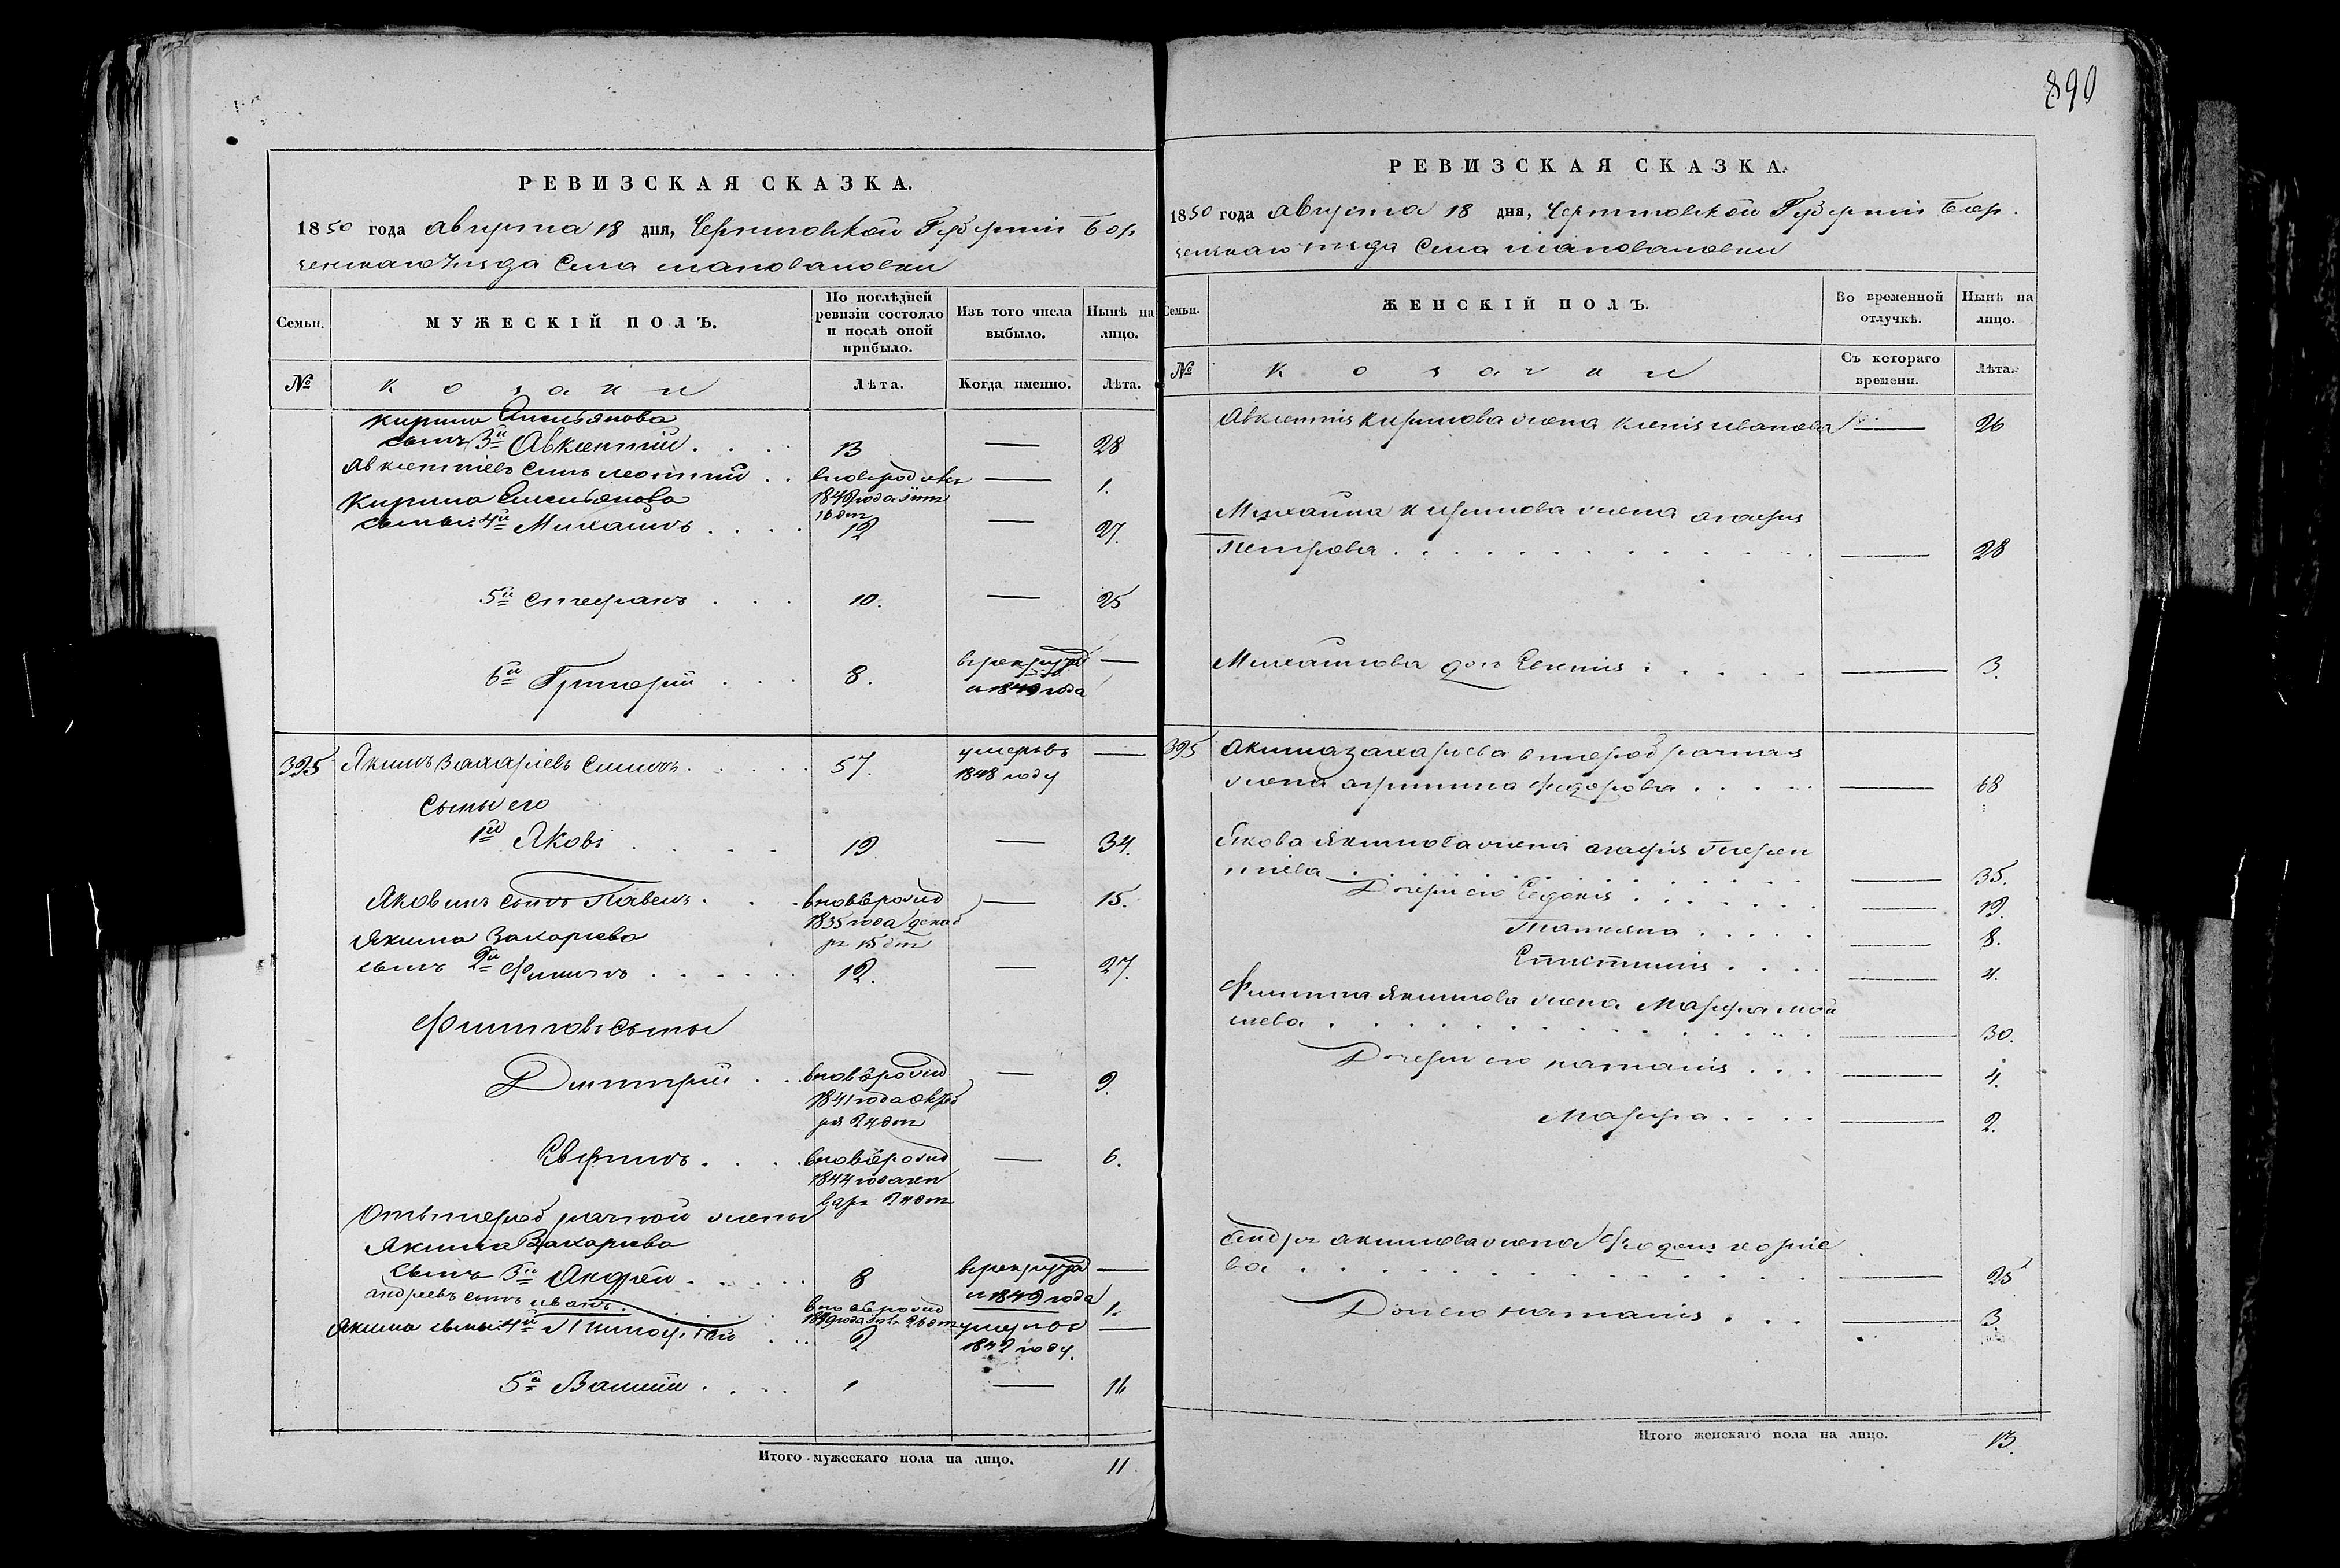 890
РЕВИЗСКАЯ СКАЗКА.
1850 года августа 18 дня, Черниговской Губернии Бор
зенскаго уезда Села
Семьи.
МУЖЕСКІЙ ПОЛЪ.
По послѣдней ревизіи состояло и послѣ оной прибыло.
Изъ того числа выбыло.
Нынѣ на лицо.
№
козаки
Лѣта.
Когда именно.
Лѣта.
Кирила Емельянова
сынъ 3й Авксентий 13 — 28
Авксентиевъ сынъ Леонтий вновь родився — 1.
1849 года
16 дня
Кирила Емельянова
сыны: 4й Михаилъ 12 — 27.
5й Стефанъ 10. — 25
6й Григорий 8. —
1849 года
395 Якимъ Захариевъ 57. умеръ въ —
1848 году
Сыны его
1й Яковъ 19 — 34.
Яковинъ сынъ Павелъ вновь рожд — 15.
1835 года декаб
ря 15 дня
Якима Захариева
сынъ 2й Филипъ 12. — 27.
Филиповы сыны
Дмитрий вновь рожд — 9.
1841 года октяб
ря 24 дня
вновь рожд — 6.
1844 года ген
варя 24 дня
Отъ второбрачной жены
Якима Захариева
сынъ 3й Андрей 8 —
1849 года
Андреевъ сынъ Иванъ вновь рожд 1.
1849 года 26 дня
Якима сыны: 4й Тимофей 2 умер —
1842 году.
5й Василий 1 — 16
Итого мужескаго пола на лицо. 11
РЕВИЗСКАЯ СКАЗКА.
1850 года августа 18 дня, Черниговской Губернии Бор.
зенскаго уезда Села
Семьи.
ЖЕНСКІЙ ПОЛЪ.
Во временной отлучкѣ.
Нынѣ на лицо.
№
козачки
Съ котораго времени.
Лѣта.
Авксентия Кирилова жена Ксения Иванова — 26
Михайла Кирилова жена Агафия
Петрова — 28
Михайлова дочь Евгения — 3.
395 Якима Захариева второбрачная
жена Федорова — 68
Якова Якимова жена Агафия Терен
тиева — 35.
Дочери его Евдокия — 19.
Татияна — 8.
Епистимия — 4.
Филипа Якимова жена Марфа Мои
сиева — 30.
Дочери его Наталия — 4.
Марфа — 2.
Андрея Акимова жена
ва — 25
Дочь его Наталия — 3.
Итого женскаго пола на лицо. 13.